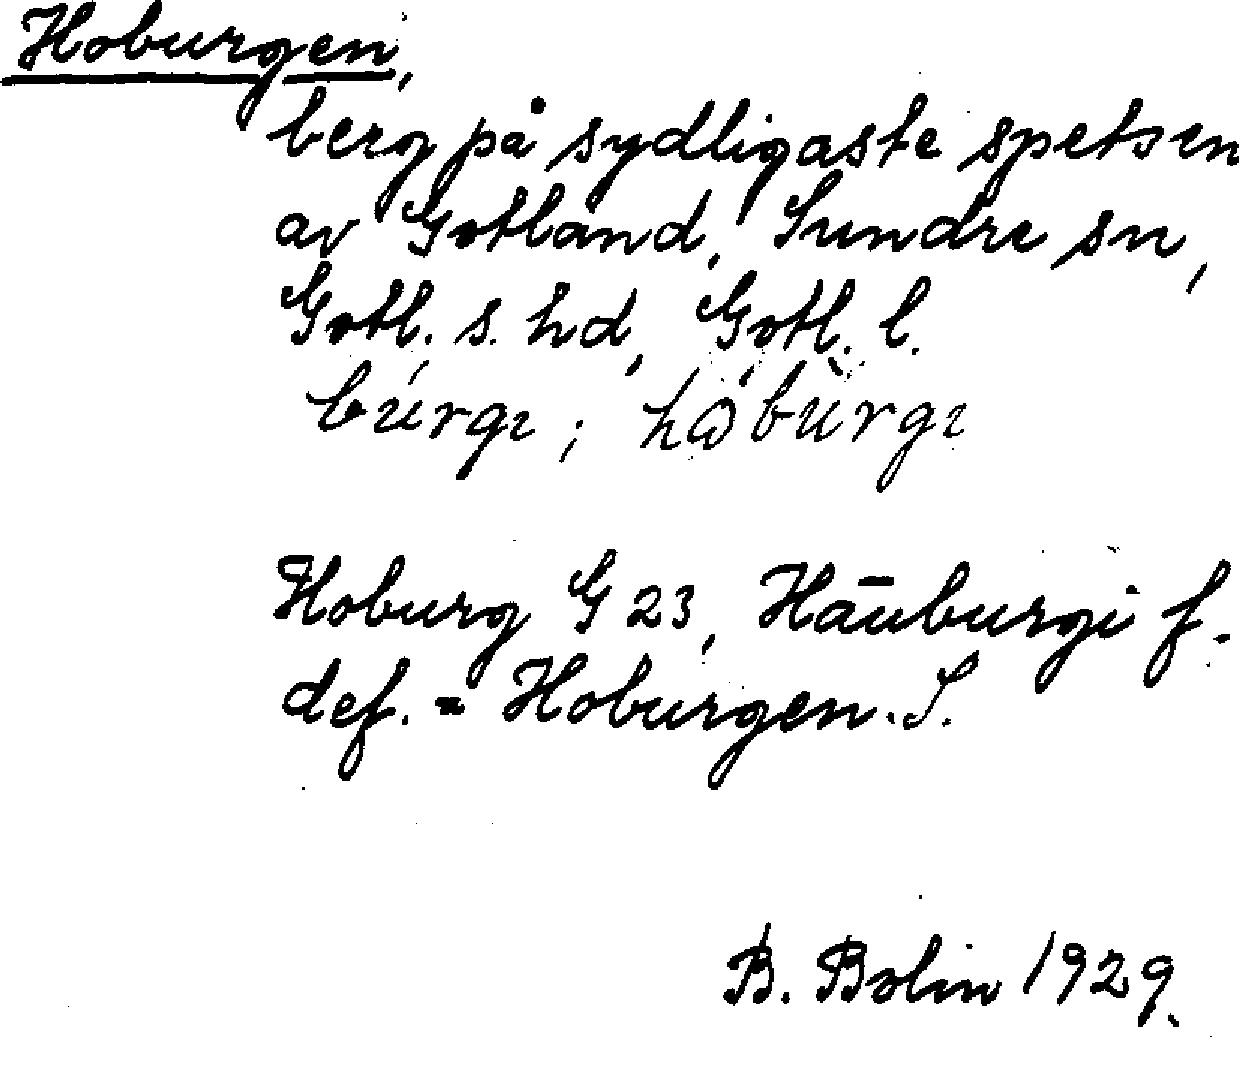 Hoburgen,
berg på sydligaste spetsen
av Gotland, Sundre sn,
Gotl. s. hd, Gotl. l.
búrgı ; hɷ́bùrgı
Hoburg G 23, Hāuburgi f.
def. = Hoburgen. S.
B. Bolin 1929.